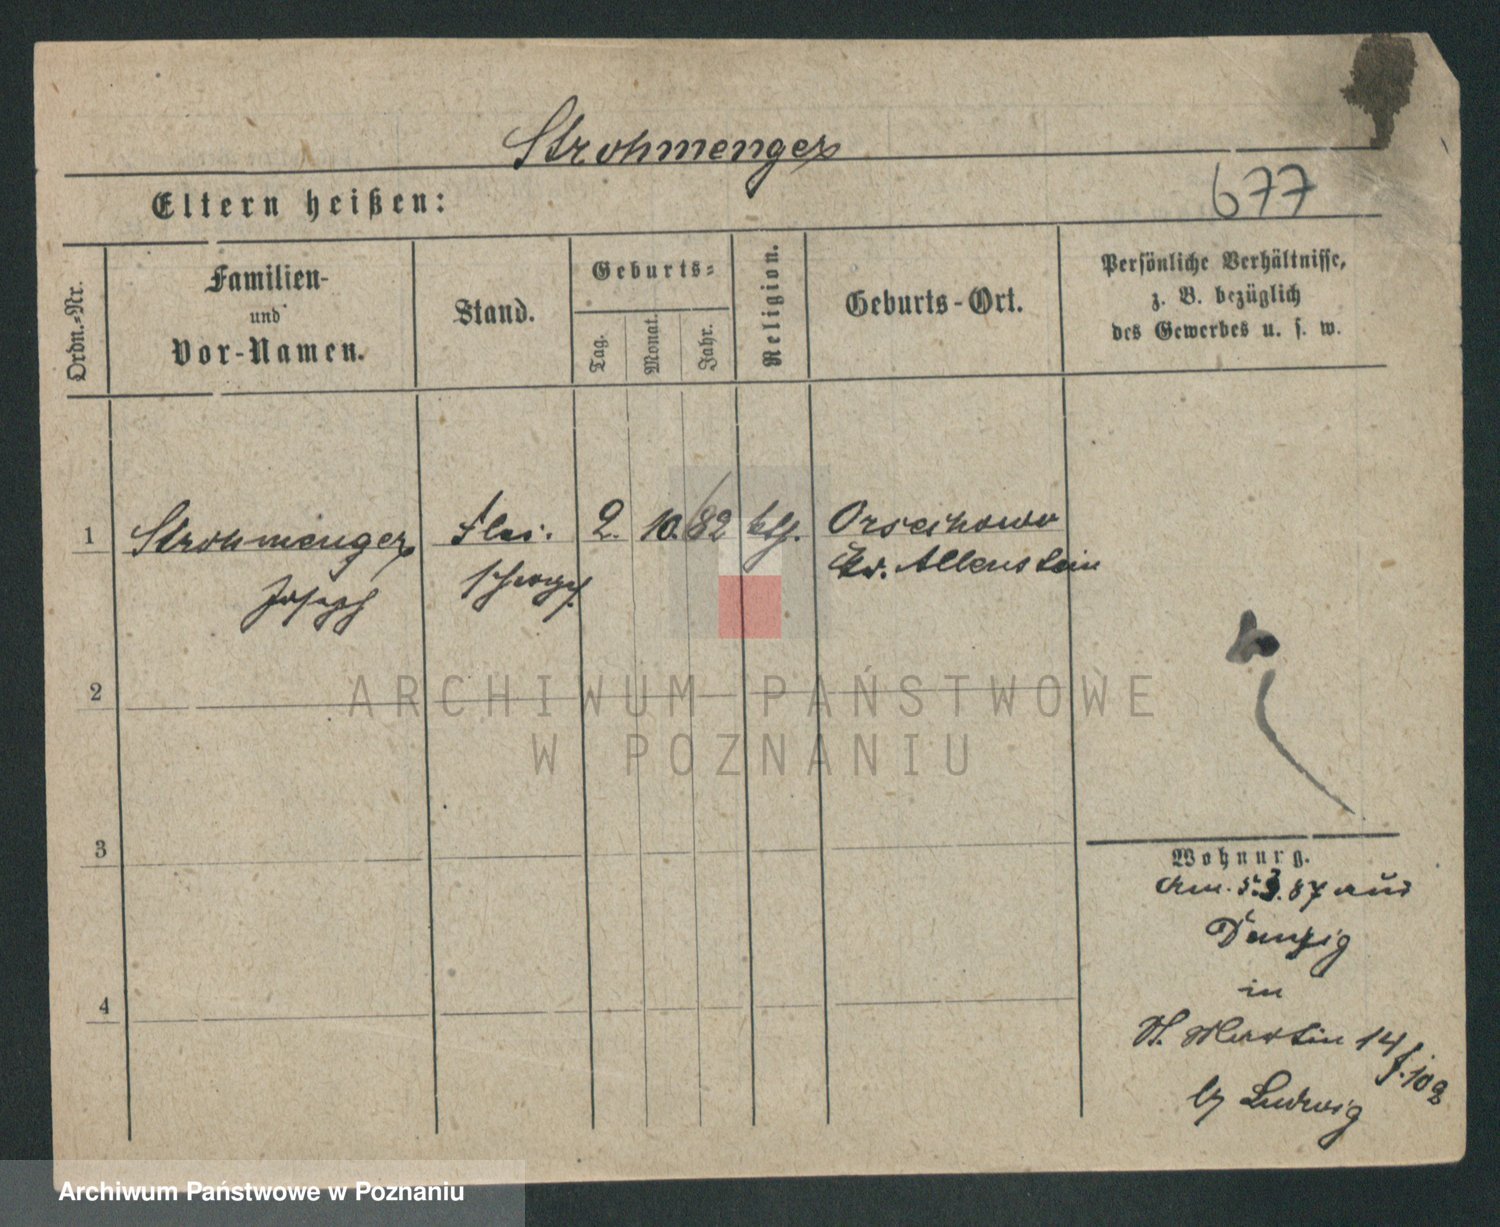 Strohmenger
Eltern heißen:
677
Ordn.-Nr.
Familien-
und
Vor-Namen.
Stand.
Geburts-
Tag.
Monat.
Jahr.
Religion.
Geburts-Ort.
Persönliche Verhältnisse,
z. B. bezüglich
des Gewerbes u. s. w.
1 Strohmenger Flei- 2. 10. 82 kth. Orzechowo
Joseph schergs. Kr. Allenstein
2
3
4
ARCHIWUM PAŃSTWOWE
W POZNANIU
Wohnung.
am 5.3.87 aus
Danzig
in
St. Martin 14
102
by Ludwig
Archiwum Państwowe w Poznaniu